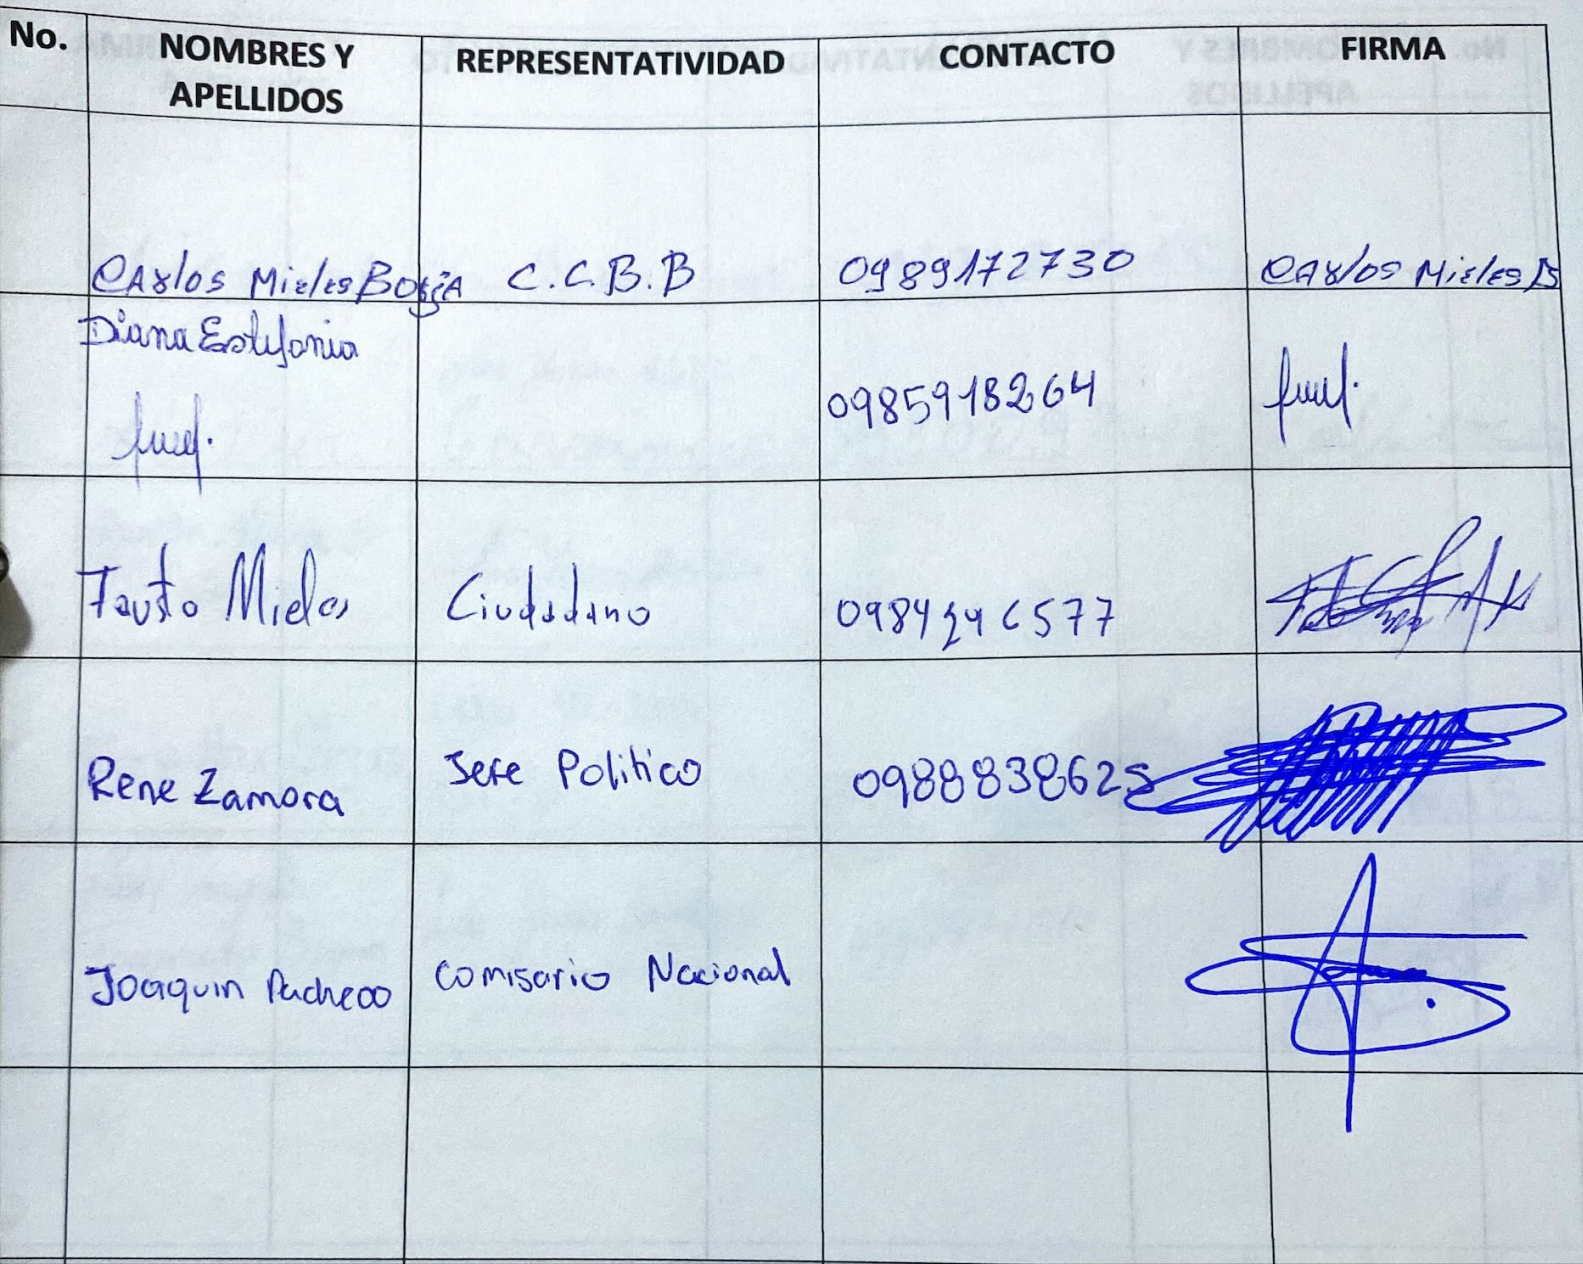 No. NOMBRES Y APELLIDOS REPRESENTATIVIDAD CONTACTO FIRMA
Carlos Mieles Borja C.C.B.B 0989172730 Carlos Mieles B
Diana Estefania
0985918264
Fausto Mieles Ciudadano 0984246577
Rene Zamora Jefe Politico 0988838625
Joaquin Pacheco Comisario Nacional